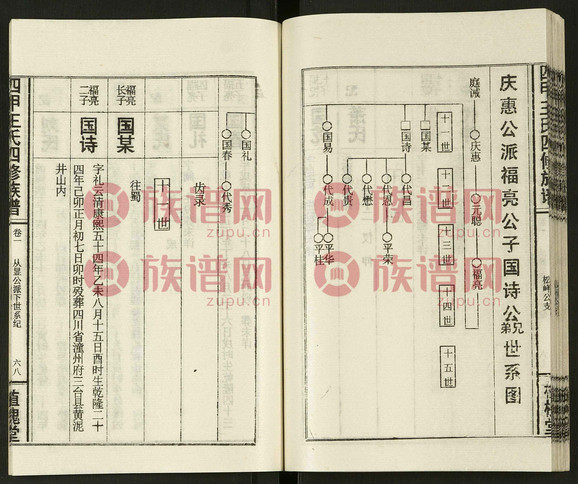 庆惠公派福亮公子国诗公兄弟世系图
庭诚
庆惠
元聪
福亮
十一世
十二世
十三世
十四世
十五世
国某
国诗
国易
代昌
代恩
代懋
代贵
代成
平荣
平华
平桂
松峰公支
国礼
国春
代秀
齿录
十一世
福亮长子
国某
往蜀
福亮二子
国诗
字礼云清康熙五十四年乙未八月十五日酉时生乾隆二十
四年己卯正月初七日卯时殁葬四川省潼州府三台县黄泥
井山内
四甲王氏四修族谱
卷二
从显公派下世系纪
六八
植槐堂
族谱网
zupu.cn
族谱网
zupu.cn
族谱网
zupu.cn
族谱网
zupu.cn